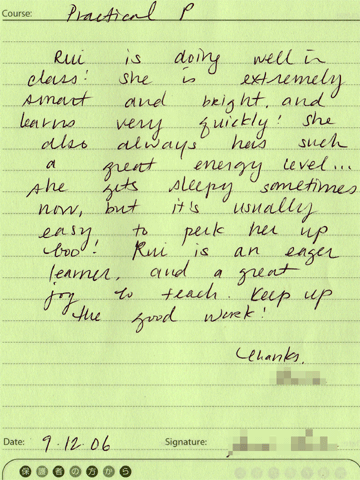 Course: Practical P
Rui is doing well in
class! She is extremely
smart and bright, and
learns very quickly! She
also always has such
a great energy level...
she gets sleepy sometimes
now, but it's usually
easy to perk her up
too! Rui is an eager
learner, and a great
joy to teach. Keep up
the good work!
Thanks,
Date: 9.12.06 Signature:
保護者の方から